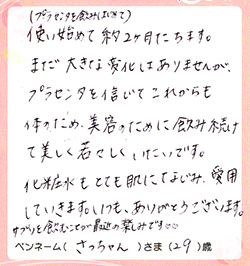 (プラセンタを飲みはじめて)
使い始めて約2ヶ月たちます。
まだ大きな変化はありませんが、
プラセンタを信じてこれからも
体のため、美容のために飲み続け
て美しく若々しくいたいです。
化粧水もとても肌になじみ、愛用
しています。いつも、ありがとうございます。
サプリを飲むことが最近の楽しみです♡♡
ペンネーム( さっちゃん )さま(29)歳